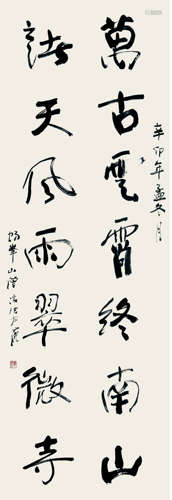 辛卯年孟冬月
萬古雲霄終南山
諸天風雨翠微寺